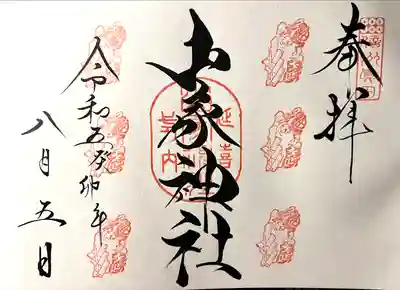 奉拝
山家神社
延喜
式内
令和五癸卯年
八月五日